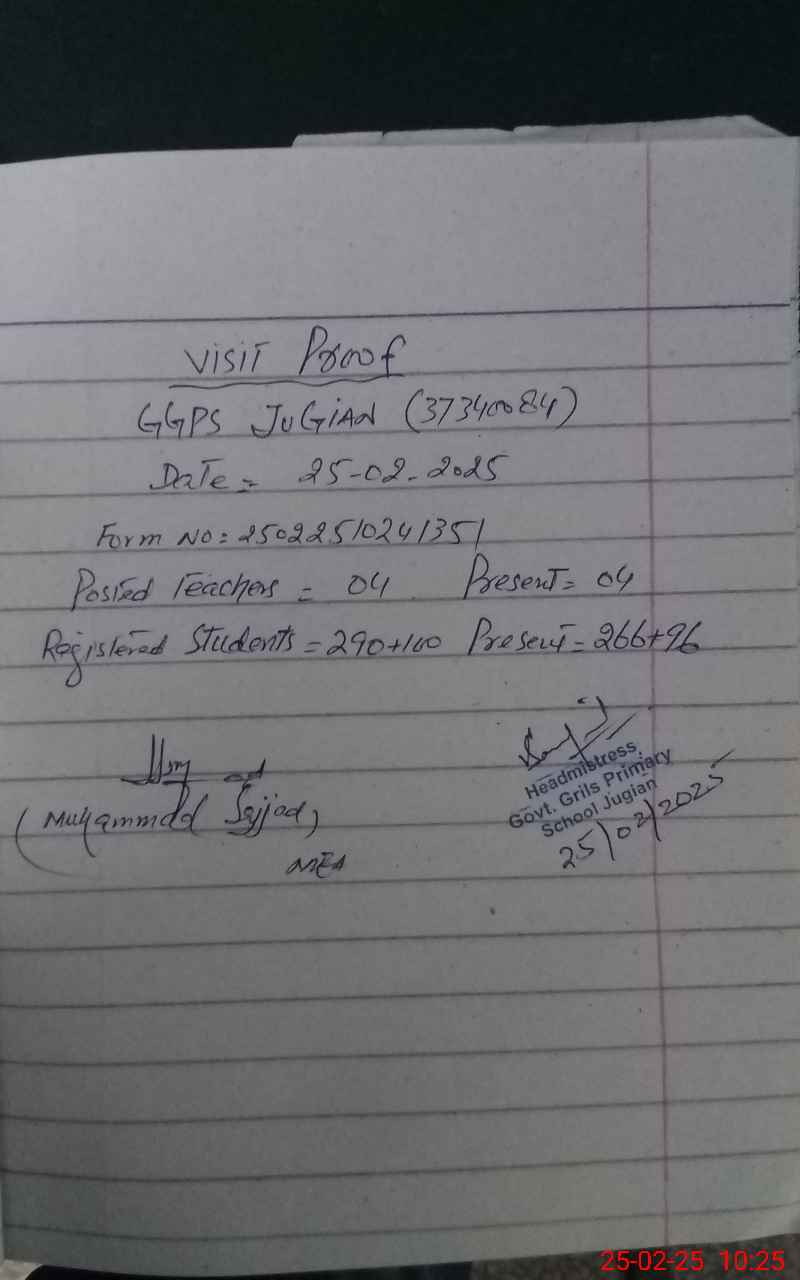 Visit Proof
GGPS JUGIAN (37340084)
Date = 25-02-2025
Form No: 25022510241351
Posted Teachers = 04 Present = 04
Registered Students = 290+100 Present = 266+96
(Muhammad Sajjad)
MEA
Headmistress,
Govt. Grils Primary
School Jugian
25/02/2025
25-02-25 10:25